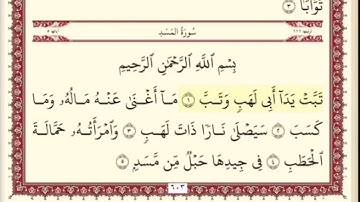 تَوَّابًا ٣
ترتيبها ١١١ سُورَةُ المَسَدِ آياتها ٥
بِسْمِ اللَّهِ الرَّحْمَٰنِ الرَّحِيمِ
تَبَّتْ يَدَآ أَبِى لَهَبٍ وَتَبَّ ١ مَآ أَغْنَىٰ عَنْهُ مَالُهُۥ وَمَا
كَسَبَ ٢ سَيَصْلَىٰ نَارًا ذَاتَ لَهَبٍ ٣ وَٱمْرَأَتُهُۥ حَمَّالَةَ
ٱلْحَطَبِ ٤ فِى جِيدِهَا حَبْلٌ مِّن مَّسَدٍۭ ٥
٦٠٣